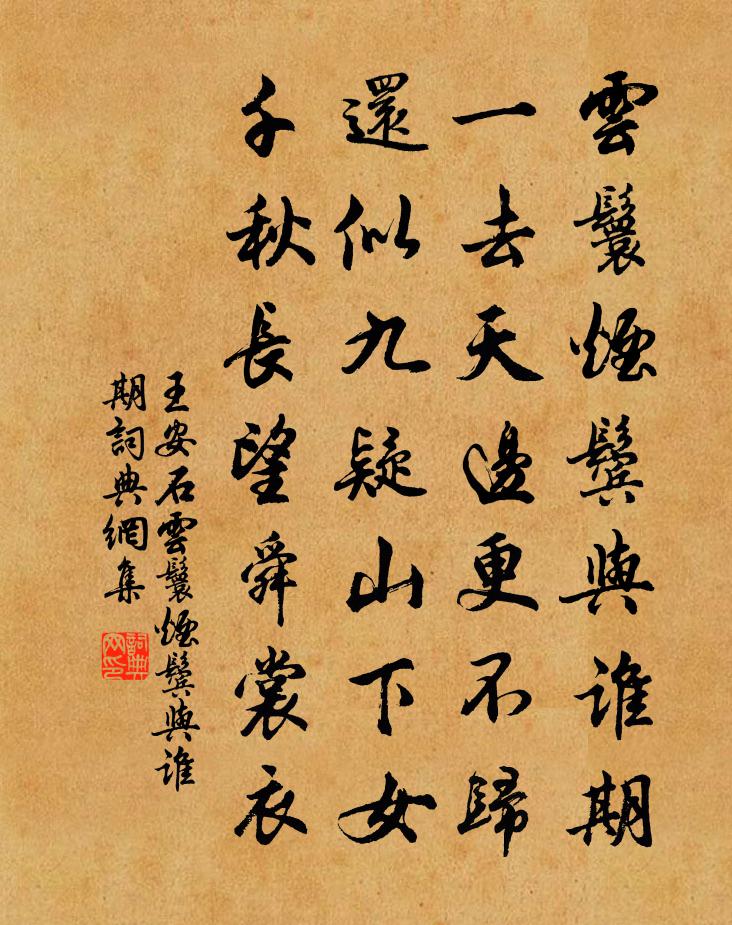 雲鬟煙鬢與誰期
一去天邊更不歸
還似九疑山下女
千秋長望舜裳衣
王安石雲鬟煙鬢與誰
期詞典網集
詞典
网印